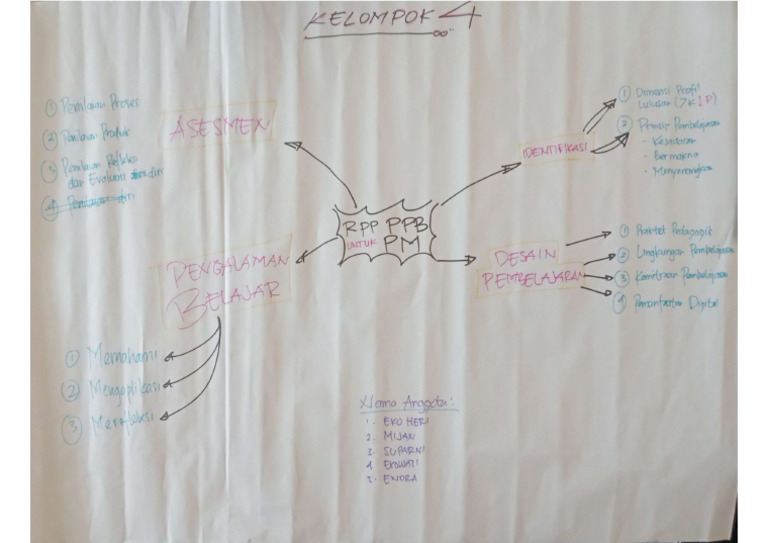 KELOMPOK 4
ASESMEN
① Penilaian Proses
② Penilaian Produk
③ Penilaian Refleksi
dan Evaluasi diri
IDENTIFIKASI
① Dimensi Profil
Lulusan (7K1P)
② Prinsip Pembelajaran
- Kesadaran
- Bermakna
- Menyenangkan
RPP PPB
UNTUK PM
PENGALAMAN
BELAJAR
① Memahami
② Mengaplikasi
③ Merefleksi
DESAIN
PEMBELAJARAN
① Praktek Pedagogik
② Lingkungan Pembelajaran
③ Kemitraan Pembelajaran
④ Pemanfaatan Digital
Nama Anggota:
1. EKO HERI
2. MIJAN
3. SUPARNI
4. EKOWATI
5. ENDRA